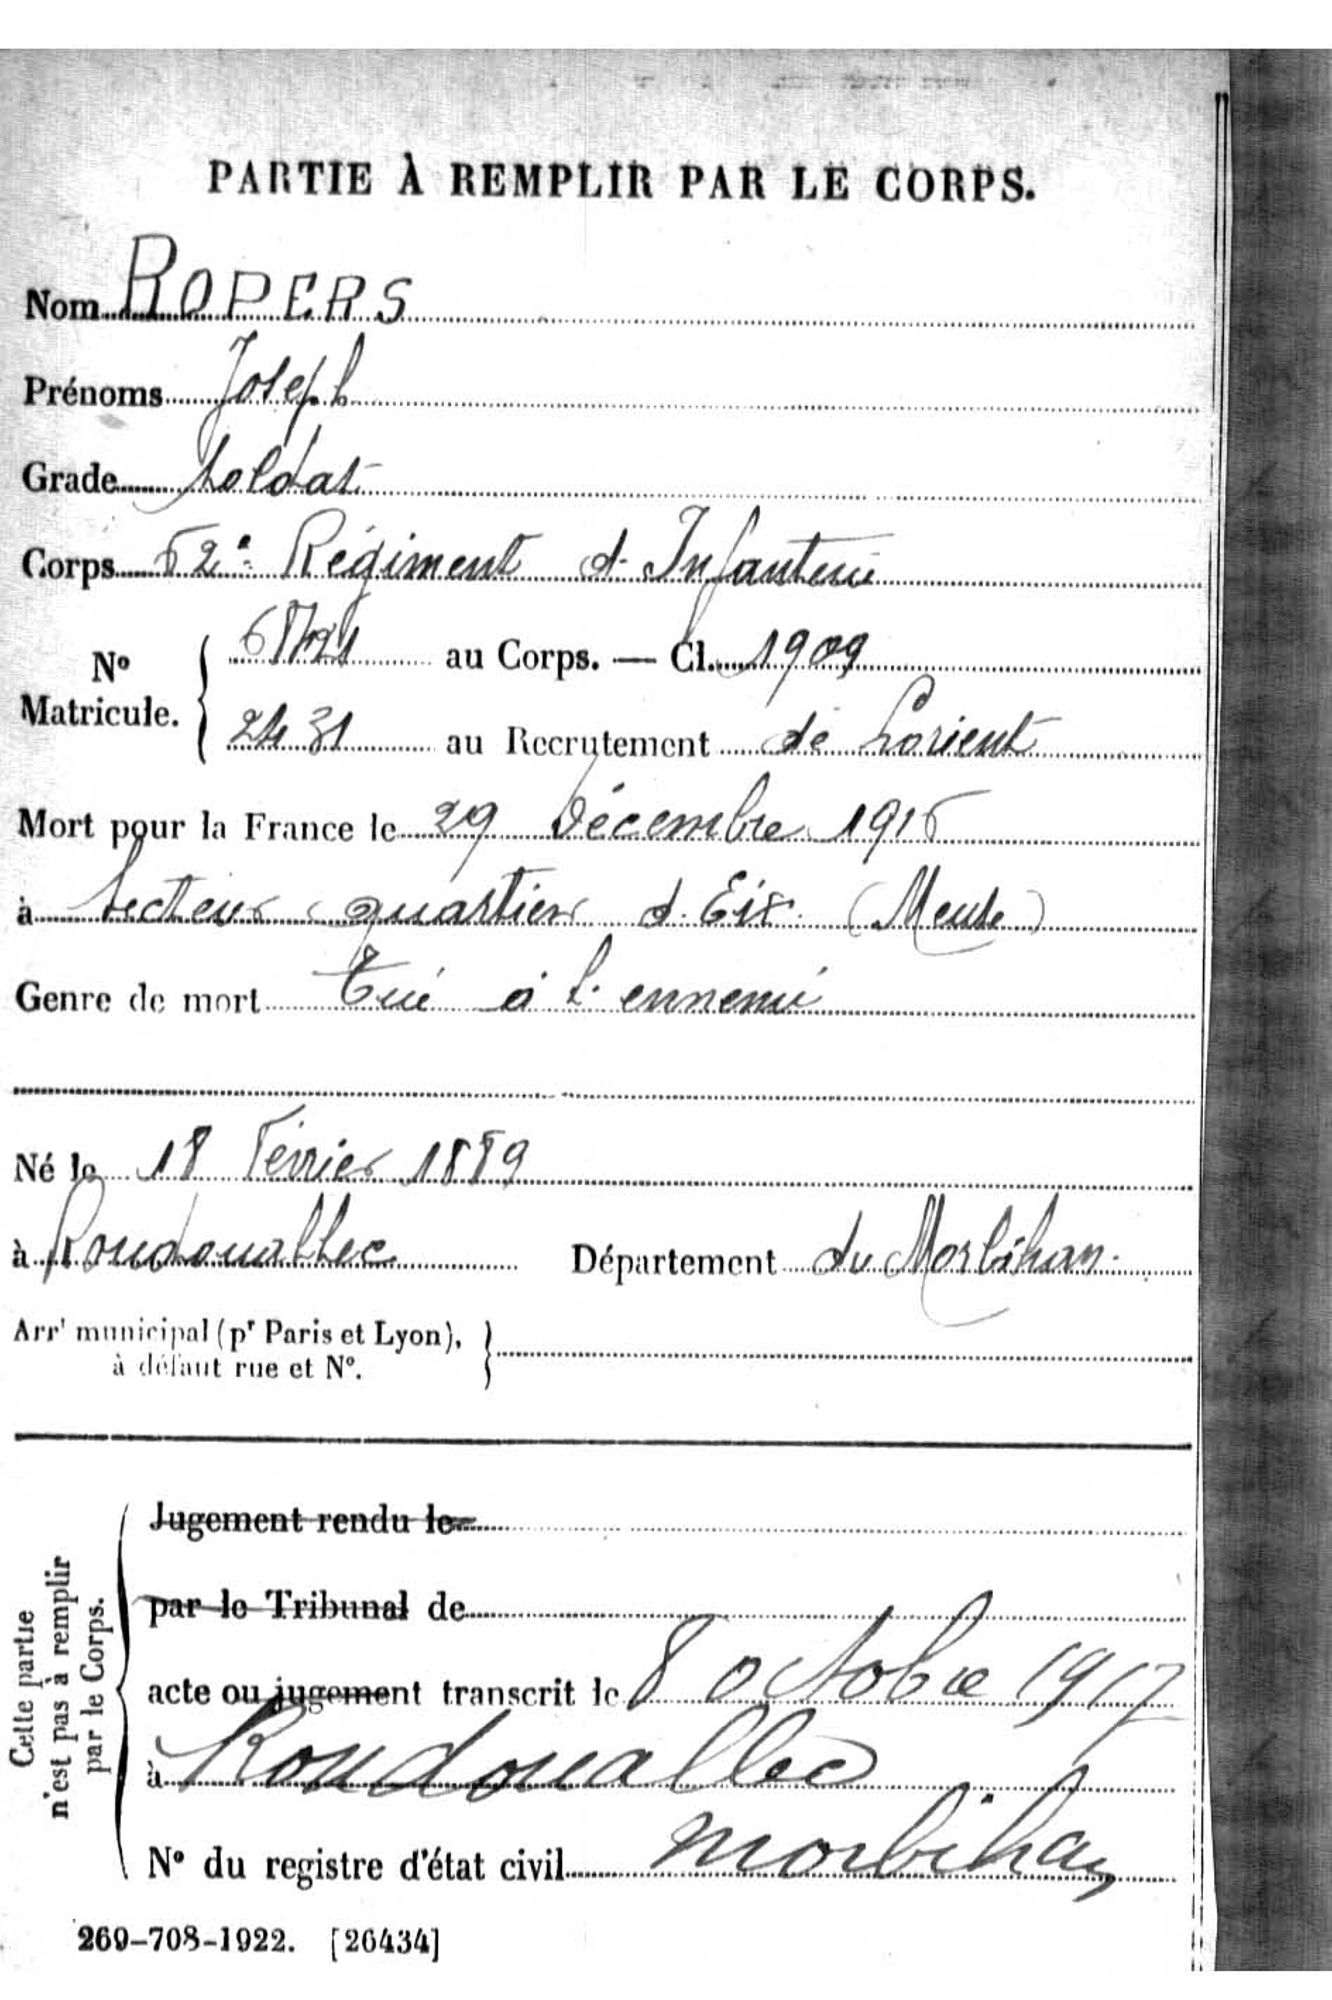 PARTIE À REMPLIR PAR LE CORPS.
Nom ROPERS
Prénoms Joseph
Grade Soldat
Corps 62e Régiment d'Infanterie
No Matricule. { au Corps. — Cl. 1909
2431 au Recrutement de Lorient
Mort pour la France le 29 Décembre 1916
à Secteur quartier d'Eix (Meuse)
Genre de mort Tué à l'ennemi
Né le 18 Février 1889
à Roudouallec Département du Morbihan.
Arrt municipal (pr Paris et Lyon),
à défaut rue et No.
Cette partie
n'est pas à remplir
par le Corps.
Jugement rendu le
par le Tribunal de
acte ou jugement transcrit le 8 octobre 1917
à Roudouallec
Morbihan
No du registre d'état civil
269-708-1922. [26434]